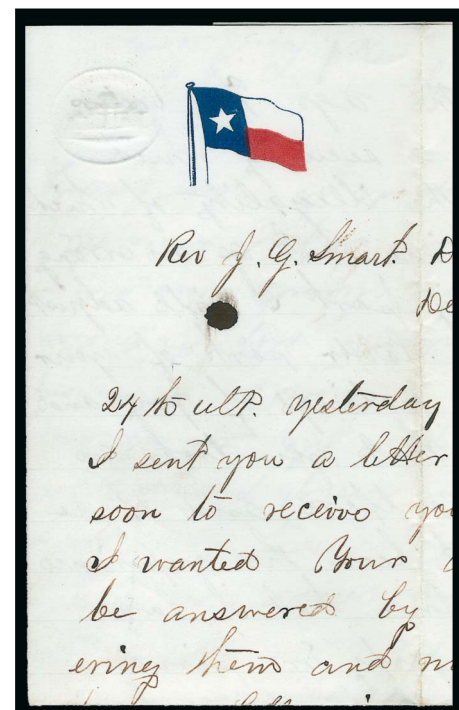 Rev J. G. Smart. D
De
24th ult. yesterday
I sent you a letter
soon to receive you
I wanted Your
be answered by
ering them and m